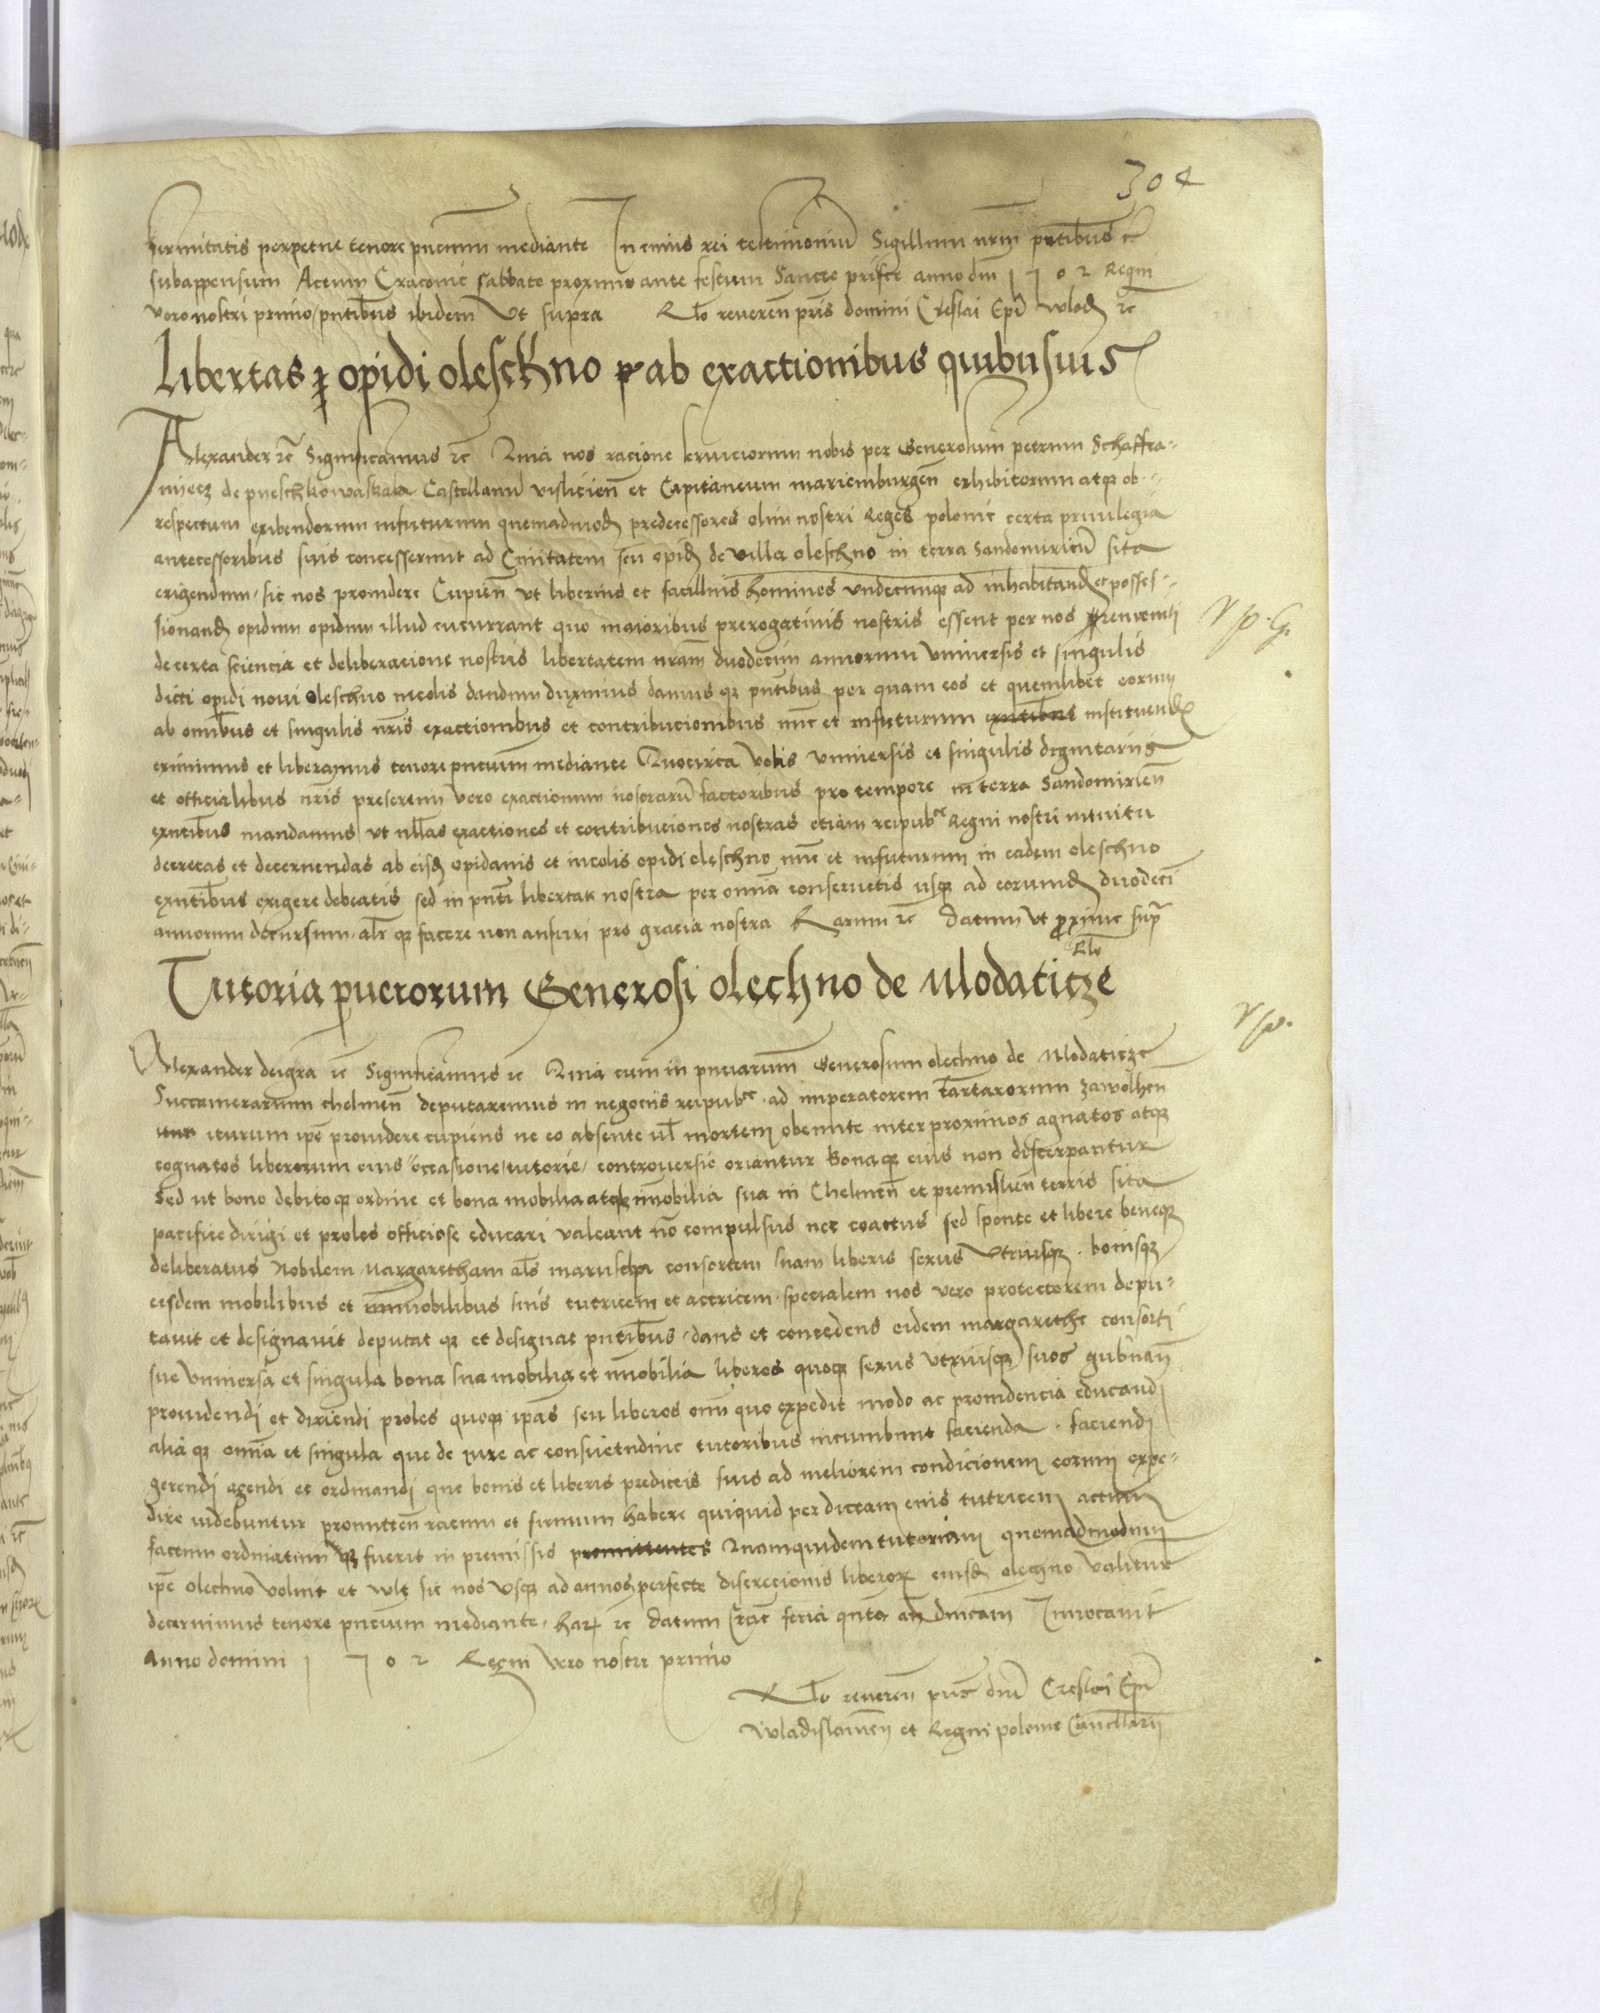 304
firmitatis perpetue tenore pncium mediante In cuius rei testimonium Sigillum nrm pntibus e
subappensum Actum Cracovie sabbato proximo ante festum Sancte prisce anno dni 1 7 0 2 Regni
vero nostri primo pntibus ibidem Ut supra Rlo reveren pris domini Creslai Epi wlod rc
Libertas opidi oleschno ab exactionibus quibusvis
Alexander rc Significamus rc Quia nos racione serviciorum nobis per Generosum petrum Schaffra-
nyecz de pyeschkowaskala Castellanu vislicien et Capitaneum mariemburgen exhibitorum atqz ob
respectum exibendorum infuturum quemadmod predecessores olim nostri Reges polonie certa privilegia
antecessoribus suis concesserunt ad Civitatem seu opid de villa oleschno in terra Sandomirien sita
erigendum sic nos providere Cupien ut liberius et facilius homines undecunqz ad inhabitand et posses-
sionand opidum opidum illud cucurrant quo maioribus prerogativis nostris essent per nos preventi
V p. G.
de certa sciencia et deliberacione nostris libertatem nram duodecim annorum universis et singulis
dicti opidi novi oleschno incolis dandum duximus damus qz pntibus per quam eos et quemlibet eorum
ab omnibus et singulis nris exactionibus et contribucionibus nunc et infuturum exntibus instituend
eximimus et liberamus tenore pncium mediante Quocirca vobis universis et singulis dignitariis
et officialibus nris presertim vero exactionum nostraru factoribus pro tempore in terra Sandomirien
exntibus mandamus ut nllas exactiones et contribuciones nostras etiam reipubce Regni nostri intuitu
decretas et decernendas ab eisd opidanis et incolis opidi oleschno nunc et infuturum in eadem oleschno
exntibus exigere debeatis sed in pnti libertate nostra per omnia conservetis usqz ad eorund duodeci
annorum decursum alr qz facere non ausuri pro gracia nostra Harum rc Datum ut proxime supr
Rlo
Tutoria puerorum Generosi olechno de Mlodaticze
V p.
Alexander dei gra rc Significamus rc Quia cum in pnciarum Generosum olechno de Mlodaticze
Succamerarium chelmen deputaremus in negociis reipubce ad imperatorem tartarorum zawolhen
itur iturum ipe providere cupiens ne eo absente ul mortem obeunte inter proximos agnatos atqz
cognatos liberorum eius occasione tutorie controversie oriantur Bonaqz eius non discerpantur
Sed ut bono debitoqz ordine et bona mobilia atqz immobilia sua in Chelmen et premislien terris sita
pacifice dirigi et proles officiose educari valeant no compulsus nec coactus sed sponte et libere beneqz
deliberatus Nobilem margaretham als maruscha consortem suam liberis sexus utriusqz bonisqz
eisdem mobilibus et immobilibus suis tutricem et actricem specialem nos vero protectorem depu-
tavit et designavit deputat qz et designat pntibus dans et concedens eidem margarethe consorti
sue universa et singula bona sua mobilia et immobilia liberos quoqz sexus utriusqz suos gubnan
providendi et dirigendi proles quoqz ipas seu liberos omi quo expedit modo ac providencia educandi
alia qz omia et singula que de jure ac consuetudine tutoribus incumbunt facienda faciendi
gerendi agendi et ordinandi que bonis et liberis predictis suis ad meliorem condicionem eorum expe-
dire videbuntur promitten ratum et firmum habere quiquid per dictam eius tutricem actum
factum ordinatum qz fuerit in premissis promittentes Quamquidem tutoriam quemadmodum
ipe olechno voluit et vult sic nos usqz ad annos perfecte discrecionis liberor eiusd olechno valitur
decernimus tenore pncium mediante har rc Datum Crac feria qnta an dnicam Invocavit
Anno domini 1 7 0 2 Regni vero nostri primo
Rlo reveren pris dni Creslai Epi
wladislavien et Regni polonie Cancellarii